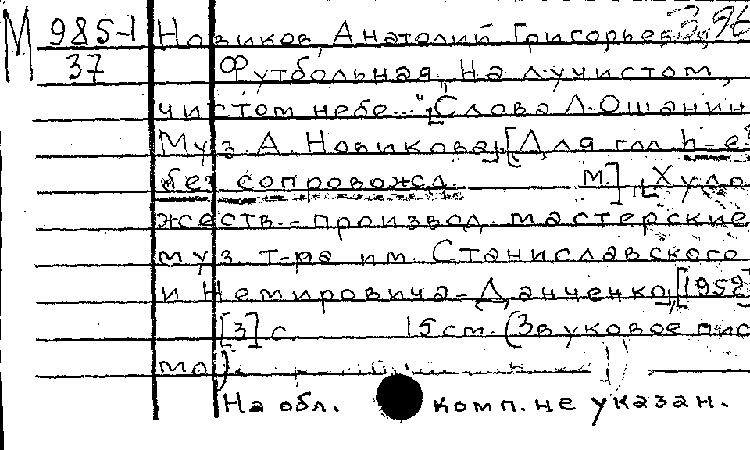 М 985-1 Новиков, Анатолий Григорьев
37 Футбольная "На лучистом,
чистом небе..." [Слова Л. Ошанин
Муз. А. Новикова]. [Для гол. h-e²
без сопровожд. М.], Худо
жеств.-производ. мастерские
муз. т-ра им. Станиславского
и Немировича-Данченко, [1959]
[3] с. 15 см. (Звуковое пис
мо)
На обл. комп. не указан.